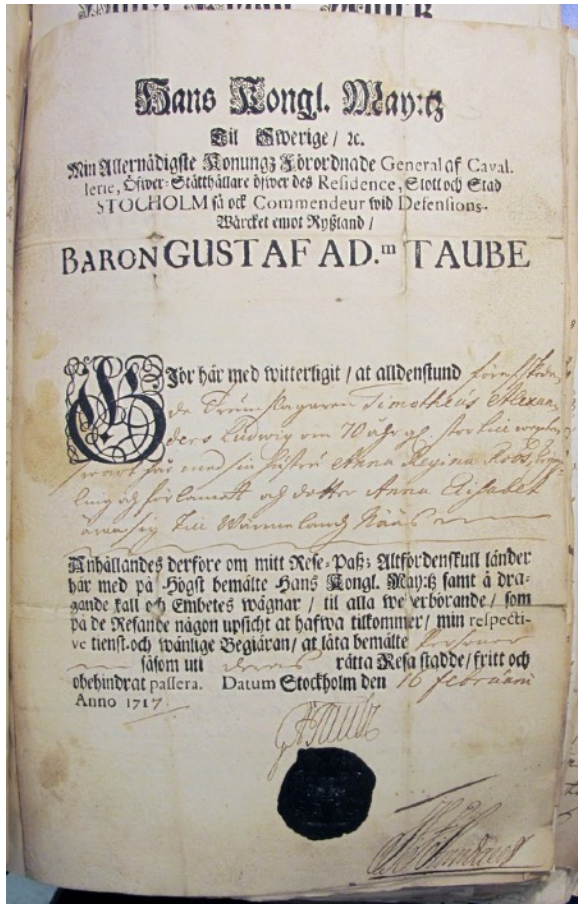 Hans Kongl. May:tz
Til Swerige / ꝛc.
Min Allernådigste Konungz Förordnade General af Caval-
lerie, Öfwer-Ståtthållare öfwer des Residence, Slott och Stad
STOCHOLM så ock Commendeur wid Defensions-
Wårcket emot Ryßland /
BARON GUSTAF AD.m TAUBE
GJör hår med witterligit / at alldenstund
de Trumslagaren Timotheus Alexan
ders Ludwig om 70 åhr
med sin hustru Anna Regina Roos,
och förlamatt och dotter Anna Elisabet
till Wärmeland Nääs
Anhållandes derföre om mitt Rese-Paß; Altfördenskull lånder
hår med på Högst bemålte Hans Kongl. May:tz samt å dra-
gande kall och Embetes wågnar / til alla wederbörande / som
på de Resande någon upsicht at hafwa tilkommer / min respecti-
ve tienst-och wånlige Begiåran / at låta bemålte Personer
såsom uti deras råtta Resa stadde / fritt och
obehindrat passera. Datum Stockholm den 16 februarii
Anno 1717.
GATaube